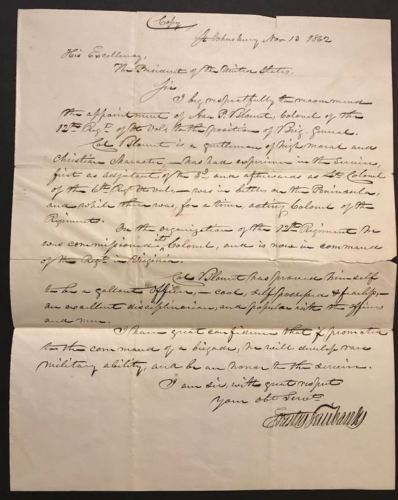 Copy
St Johnsbury Nov 13 1862
His Excellency,
The President of the United States.
Sir
I beg respectfully to recommend
the appointment of Asa P. Blunt, Colonel of the
12th Regt. of Vt Vols to the position of Brig. General.
Col Blunt is a gentleman of high moral and
Christian Character, - has had experience in the service,
first as adjutant of the 3d and afterwards as Lt Colonel
of the 6th Regt Vt Vols - was in battles on the Peninsula,
and while there was, for a time, acting Colonel of the
Regiment.
On the organization of the 12th Regiment he
was commissioned its Colonel, and is now in command
of the Regt in Virginia.
Col Blunt has proved himself
to be a gallant officer, - cool, self possessed & fearless, -
an excellent disciplinarian, and popular with the officers
and men.
I have great confidence that if promoted
to the command of a brigade, he will develop rare
military ability, and be an honor to the service.
I am sir, with great respect
Your obt Servt.
Erastus Fairbanks